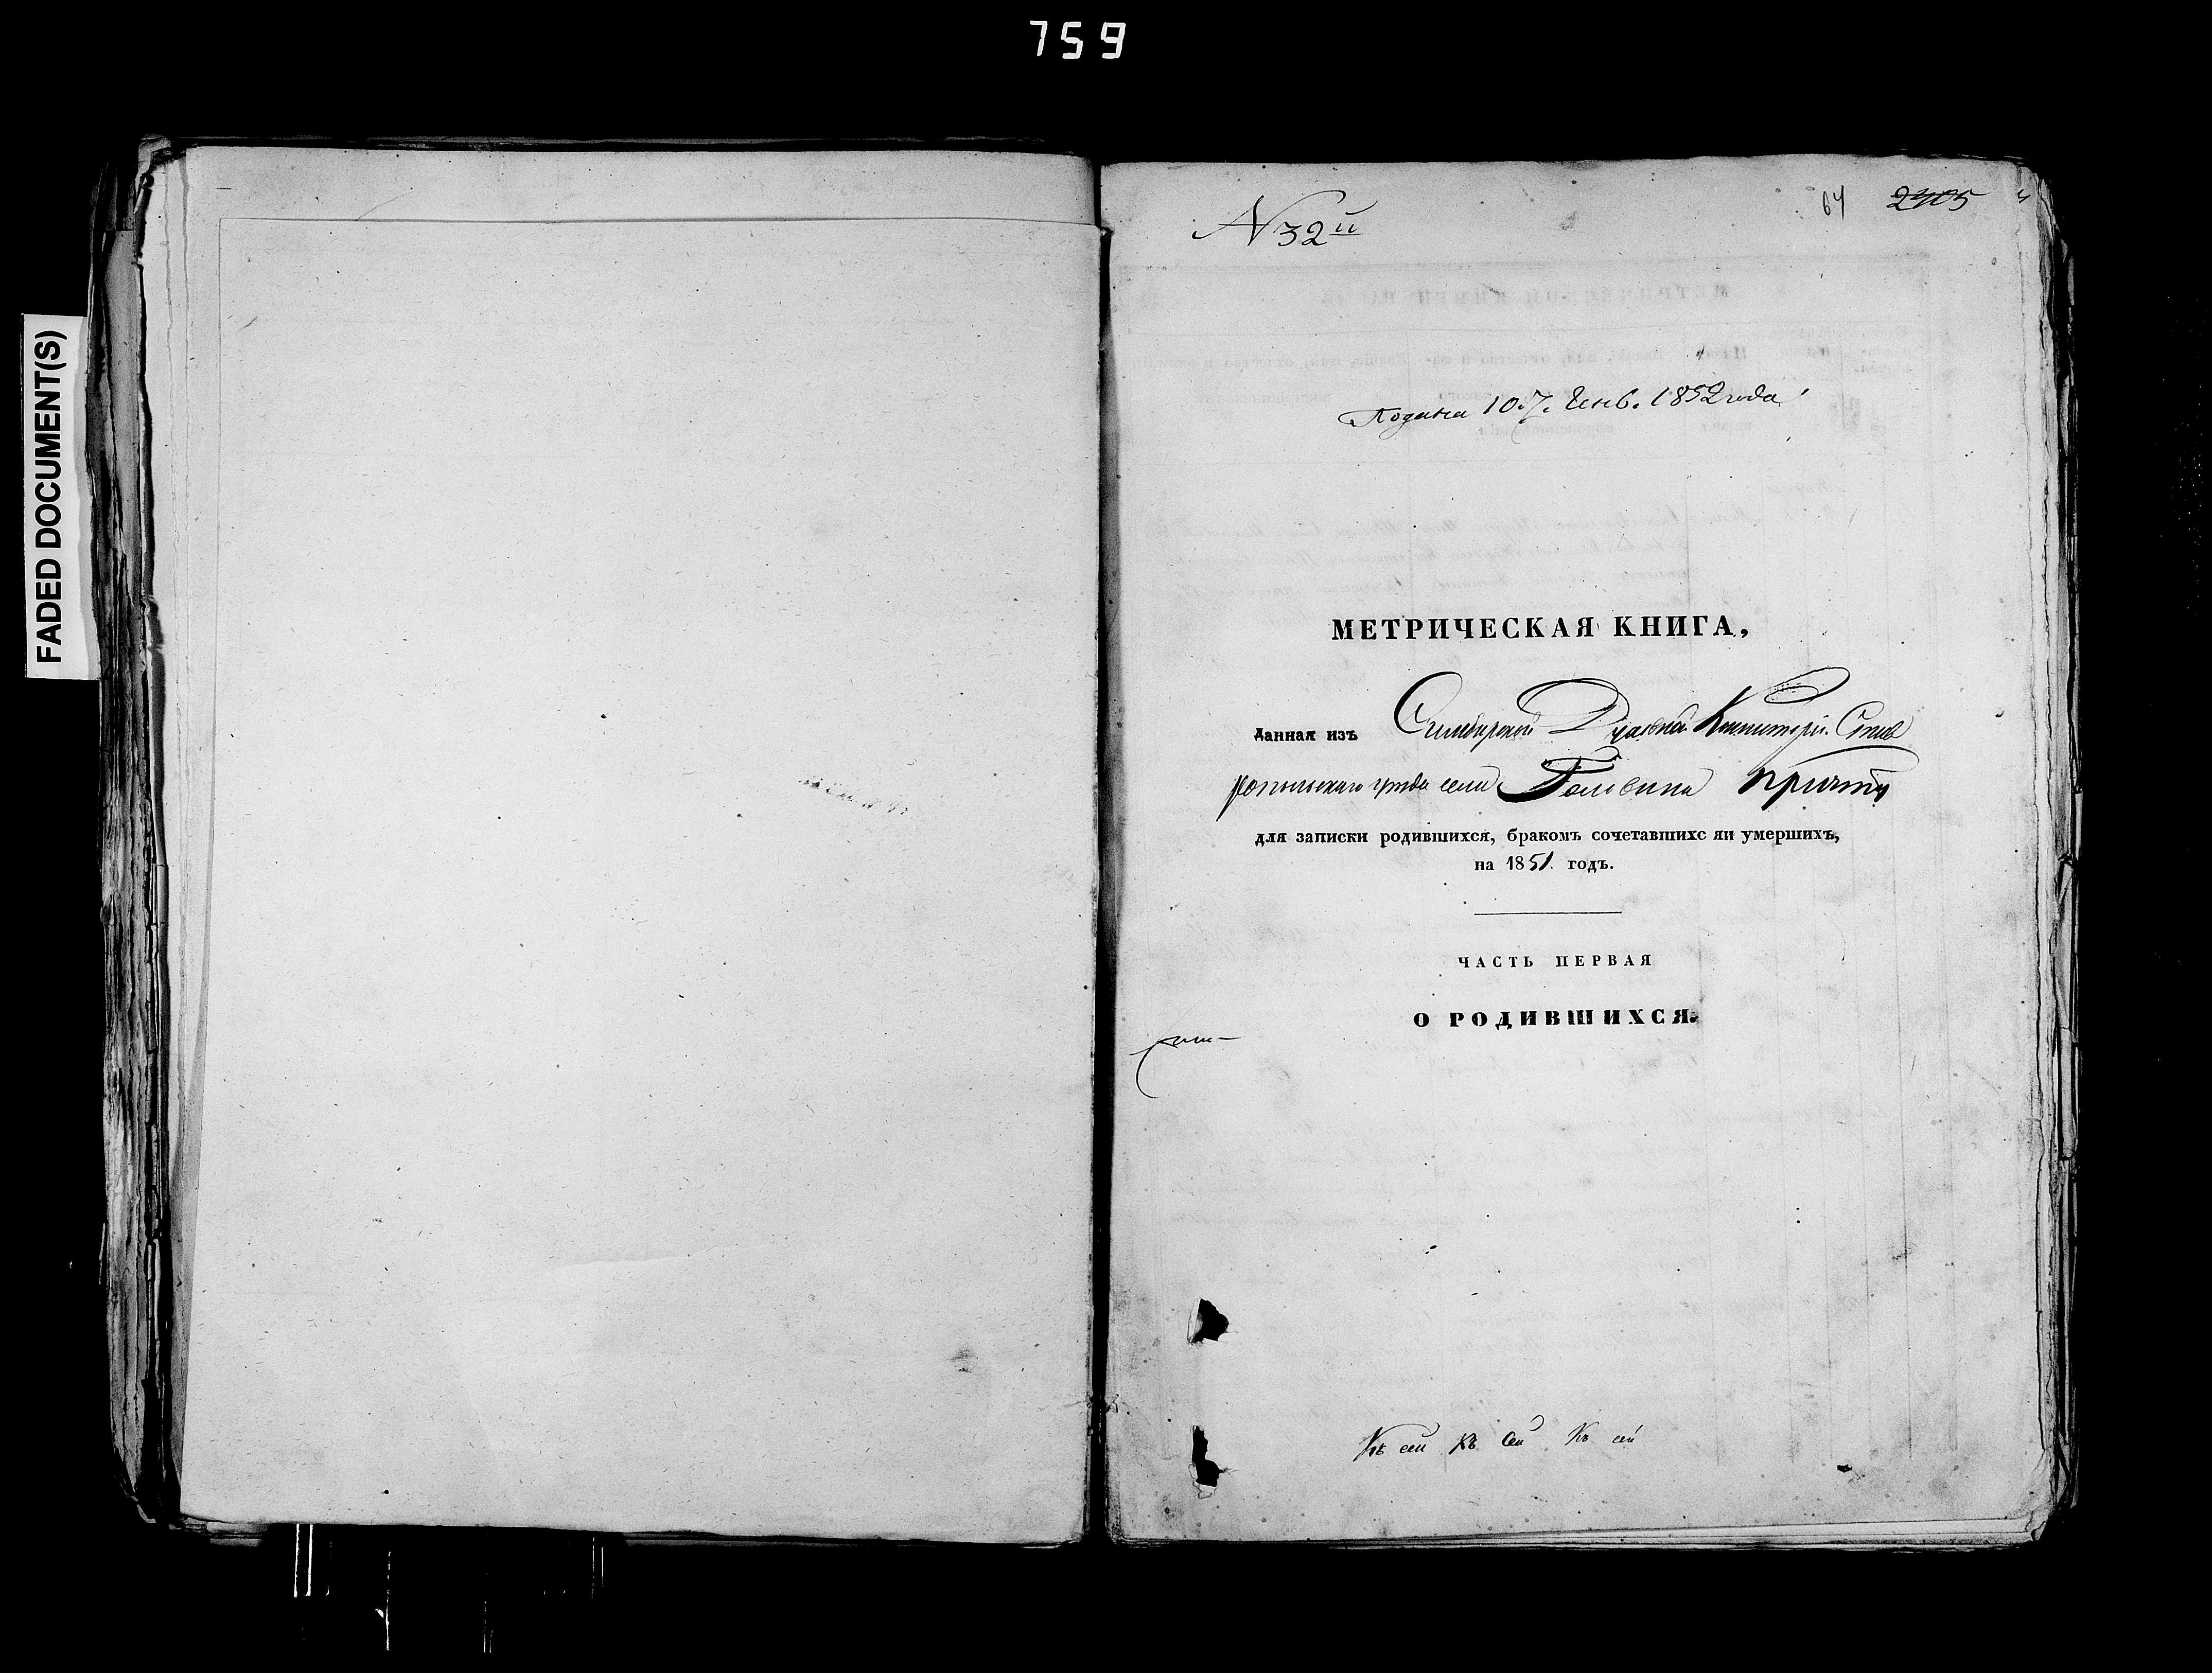 759
FADED DOCUMENT(S)
N 32й
64 2405
Подана 10. Генв. 1852 года
МЕТРИЧЕСКАЯ КНИГА,
данная изъ Симбирской Духовной Консисторіи Став
ропольскаго уѣзда села Головина причту
для записки родившихся, бракомъ сочетавшихс яи умершихъ,
на 1851 годъ.
ЧАСТЬ ПЕРВАЯ
О РОДИВШИХСЯ.
Къ сей Къ Сей Къ сей